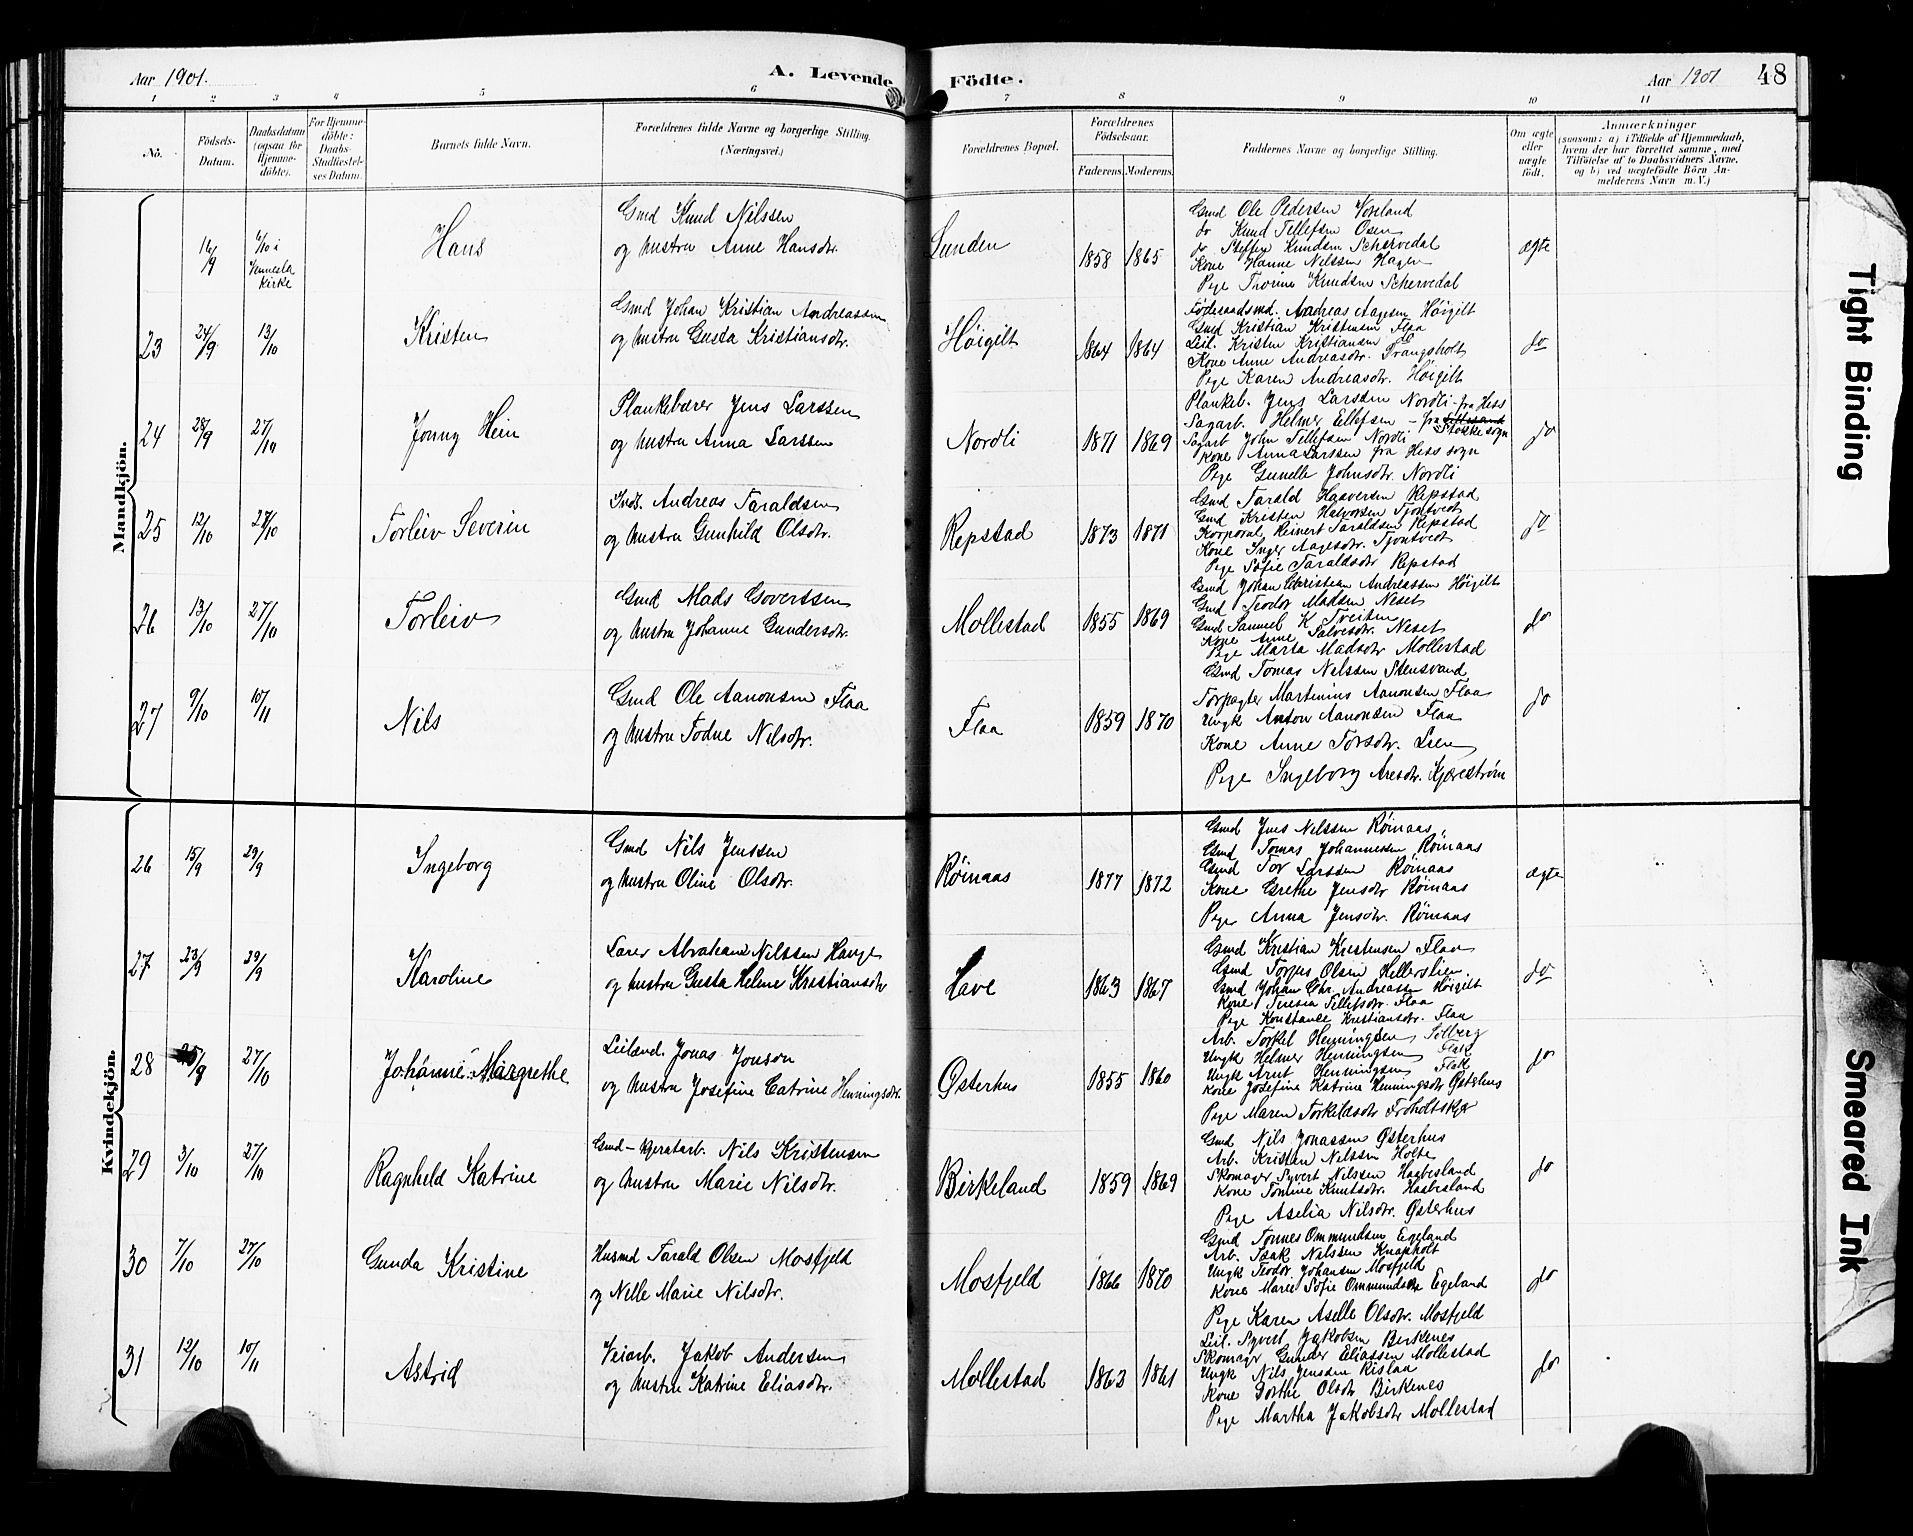 Aar 1901.
A. Levende Födte.
Aar 1901 48
1 2 3 4 5 6 7 8 9 10 11
No.
Födsels-Datum.
Daabsdatum (ogsaa for Hjemme-döbte).
For Hjemme-döbte: Daabs-Stadfæstel-ses Datum.
Barnets fulde Navn.
Forældrenes fulde Navne og borgerlige Stilling. (Næringsvei.)
Forældrenes Bopæl.
Forældrenes Födselsaar.
Faderens. Moderens.
Faddernes Navne og borgerlige Stilling.
Om ægte eller uægte födt.
Anmærkninger
(saasom: a) i Tilfælde af Hjemmedaab, hvem der har forrettet samme, med Tilföielse af to Daabsvidners Navne, og b) ved uægtefödte Börn An-melderens Navn m. V.)
Mandkjön.
16/9 6/10 i Vennesla Kirke
Hans
Gmd Knud Nilssen
og hustru Anne Hansdtr.
Lunden
1858 1865
Gmd Ole Pedersen Voreland
do Knud Tellefsen Osen
do Steffen Knudsen Schervedal
Kone Hanne Nelssen Hagen
Pige Thorine Knudsen Schervedal
ægte
23 24/9 13/10
Kristen
Gmd Johan Kristian Andreassen
og hustru Gusta Kristiansdtr.
Høigilt
1864 1864
Föderaadsmd. Andreas Aagesen Høigilt
Gmd Kristian Kristensen Flaa
Leil. Kristen Kristiansen
Kone Anne Andreasdtr. Trangsholt
Pige Karen Andreasdtr. Høigilt
do
24 28/9 27/10
Jonny Hein
Plankebærer Jens Larssen
og hustru Anna Larssen
Nordli
1871 1869
Plankeb. Jens Larssen Nordli - fra Hess
Sagarb. Helmer Ellefsen - fra
Sagarb John Tellefsen Nordli
Kone Anna Larssen fra Hess sogn
Pige Gunelle Johnsdtr. Nordli
do
25 12/10 27/10
Torleiv Severin
Indt. Andreas Taraldsen
og hustru Gunhild Olsdtr.
Repstad
1873 1871
Gmd Tarald Haaversen Repstad
Gmd Kristen Halvorsen Tjöntvedt
Korporal Reinert Taraldsen Repstad
Kone Inger Aagesdtr. Tjöntvedt
Pige Sofie Taraldsdtr Repstad
do
26 13/10 27/10
Torleiv
Gmd Mads Govertssen
og hustru Johanne Gundersdtr.
Mollestad
1855 1869
Gmd Johan Christian Andreassen Høigilt
Gmd Teodor Madsen Neset
Gmd Samuel K Tveiten
Kone Anne Salvesdtr. Neset
Pige Marta Madsdtr Mollestad
do
27 9/10 10/11
Nils
Gmd Ole Aanonsen Flaa
og hustru Todne Nilsdtr.
Flaa
1859 1870
Gmd Tomas Nelssen Stensvand
Forpagter Martinius Aanonsen Flaa
Ungk Anton Aanonsen Flaa
Kone Anne Torsdtr. Lien
Pige Ingeborg Aresdtr. Kjærestrøm
do
Kvindekjön.
26 15/9 29/9
Ingeborg
Gmd Nils Jenssen
og hustru Oline Olsdtr.
Røinaas
1877 1872
Gmd Jens Nilssen Røinaas
Gmd Tomas Johannessen Røinaas
Gmd Tor Larssen Røinaas
Kone Grethe Jensdtr Røinaas
Pige Anna Jensdtr. Røinaas
ægte
27 23/9 29/9
Karoline
Lærer Abraham Nilssen Hauge
og hustru Gusta Helene Kristiansdtr
Have
1863 1867
Gmd Kristian Kristensen Flaa
Gmd Torjus Olsen Hellerslien.
Gmd Johan Chr. Andreassen Høigilt
Kone Teresia Tellefsdtr. Flaa
Pige Konstance Kristiansdtr. Flaa
do
28 25/9 27/10
Johanne Margrethe
Leilænd. Jonas Jonson
og hustru Josefine Catrine Henningsdtr.
Østerhus
1855 1860
Arb. Torkel Henningsen Sølberg
Ungk Helmer Henningsen Flak
Ungk Arnt Henningsen Flak
Kone Josefine Katrine Henningsdtr Østerhus
Pige Maren Torkildsdtr Froholtskjær
do
29 3/10 27/10
Ragnheld Katrine
Gmd - Kjeratarb. Nils Kristensen
og hustru Marie Nilsdtr.
Birkeland
1859 1869
Gmd Nils Jonassen Østerhus
Arb. Kristian Nelssen Holte
Skomager Syvert Nilssen Haabesland
Kone Tomine Knutsdtr. Haabesland
Pige Aselia Nilsdtr. Østerhus
do
30 7/10 27/10
Gunda Kristine
Husmd Tarald Olsen Mosfjeld
og Nelle Marie Nilsdtr.
Mosfjeld
1866 1870
Gmd Tønnes Ommundsen Egeland
Arb. Isak Nilssen Knapholt
Ungk Teodor Johansen Mosfjeld
Kone Marie Sofie Ommundsdtr Egeland
Pige Karen Aselle Olsdtr. Mosfjeld
do
31 12/10 10/11
Astrid
Veiarb. Jakob Andersen
og hustru Katrine Eliasdtr.
Mollestad
1863 1861
Leil. Syvert Jakobsen Birkenes
Skomager Gunder Eliassen Mollestad
Ungk Nils Jenssen Rislaa
Kone Dorthe Olsdtr Birkenes
Pige Martha Jakobsdtr Mollestad
do
Tight Binding
Smeared Ink